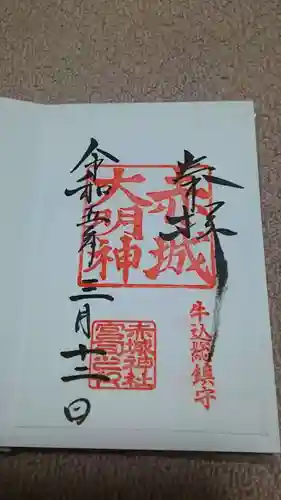 奉拝
牛込總鎮守
赤城
大明神
赤城神社
宮司之印
令和五年三月十二日